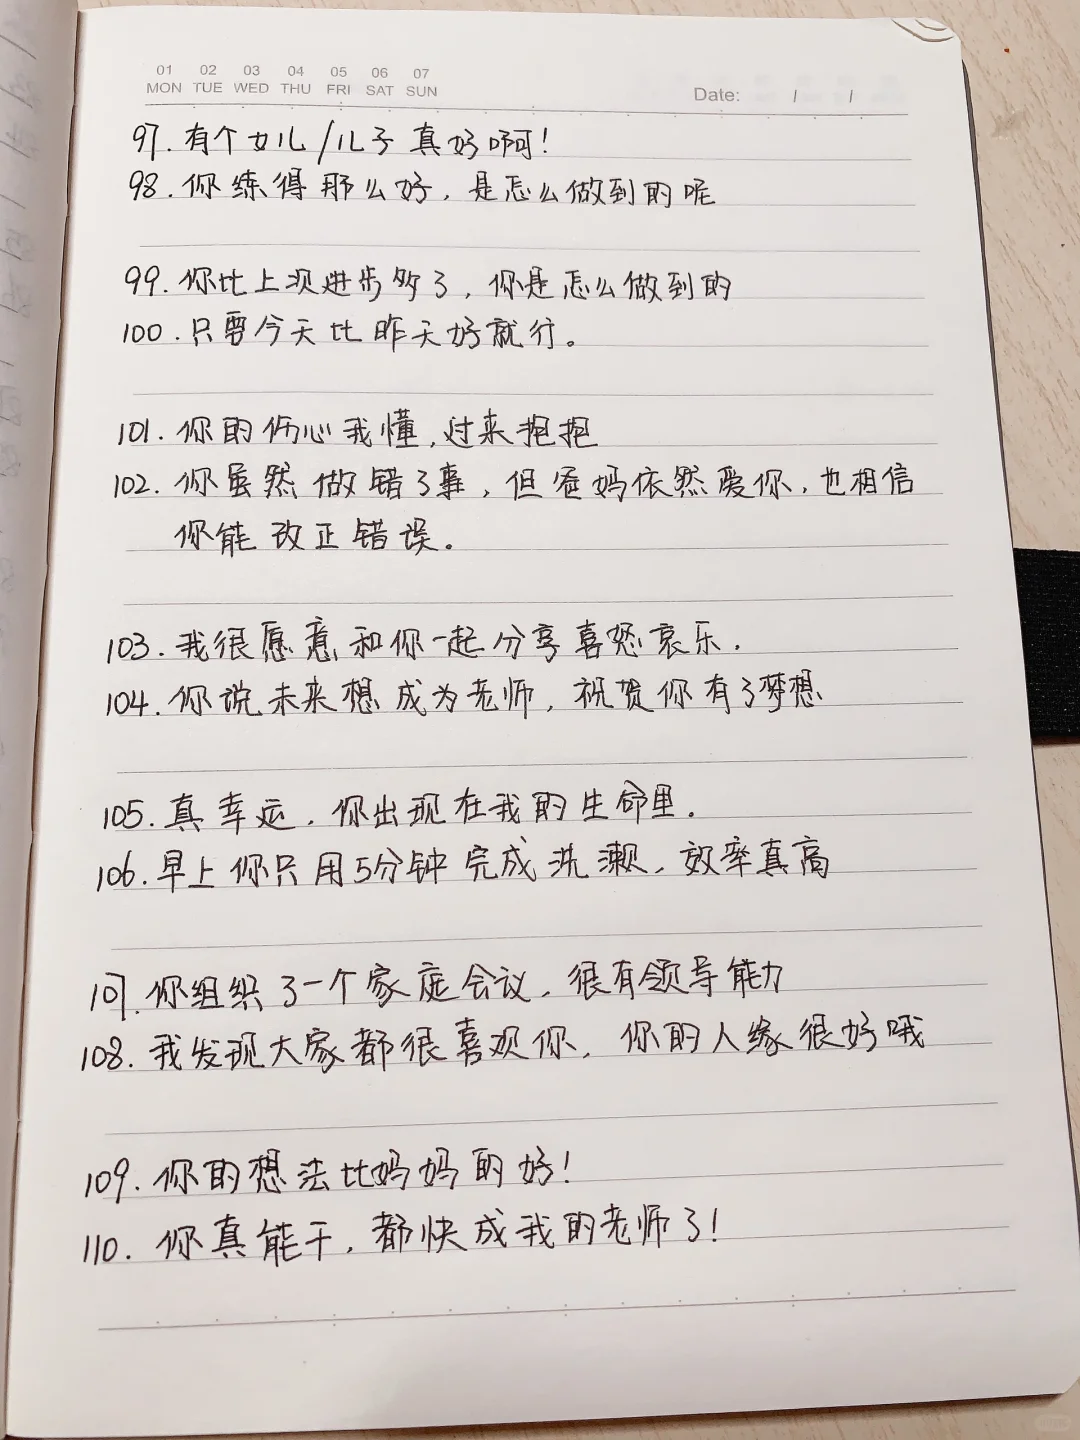 01 02 03 04 05 06 07
MON TUE WED THU FRI SAT SUN
Date: / /
97. 有个女儿/儿子真好啊!
98. 你练得那么好，是怎么做到的呢
99. 你比上次进步多了，你是怎么做到的
100. 只要今天比昨天好就行。
101. 你的伤心我懂，过来抱抱
102. 你虽然做错了事，但爸妈依然爱你，也相信
你能改正错误。
103. 我很愿意和你一起分享喜怒哀乐.
104. 你说未来想成为老师，祝贺你有了梦想
105. 真幸运，你出现在我的生命里.
106. 早上你只用5分钟完成洗漱，效率真高
107. 你组织了一个家庭会议，很有领导能力
108. 我发现大家都很喜欢你，你的人缘很好哦
109. 你的想法比妈妈的好!
110. 你真能干，都快成我的老师了!